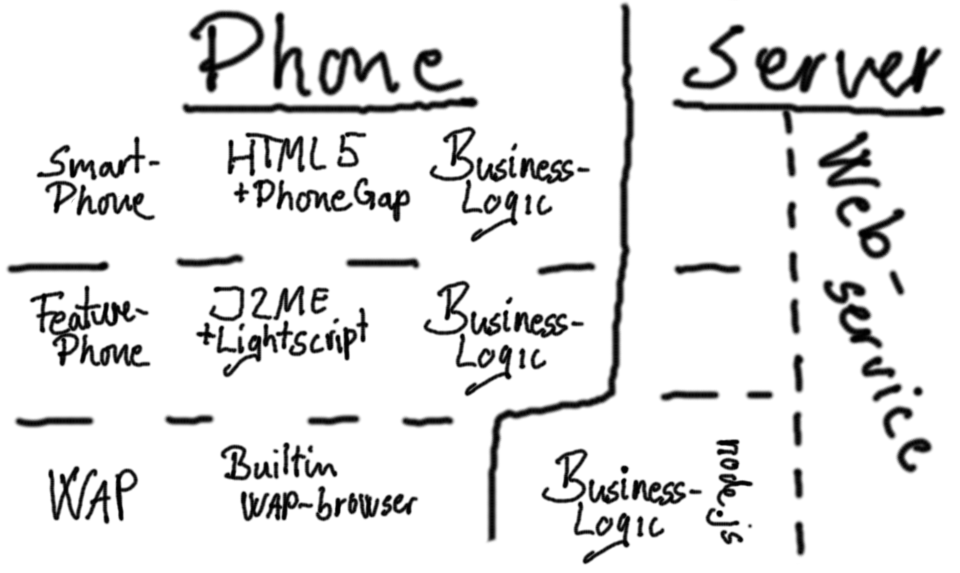 Phone
Server
Smart-
Phone
HTML5
+PhoneGap
Business-
Logic
Feature-
Phone
J2ME
+Lightscript
Business-
Logic
WAP
Builtin
WAP-browser
Business-
Logic
node.js
Web-
service